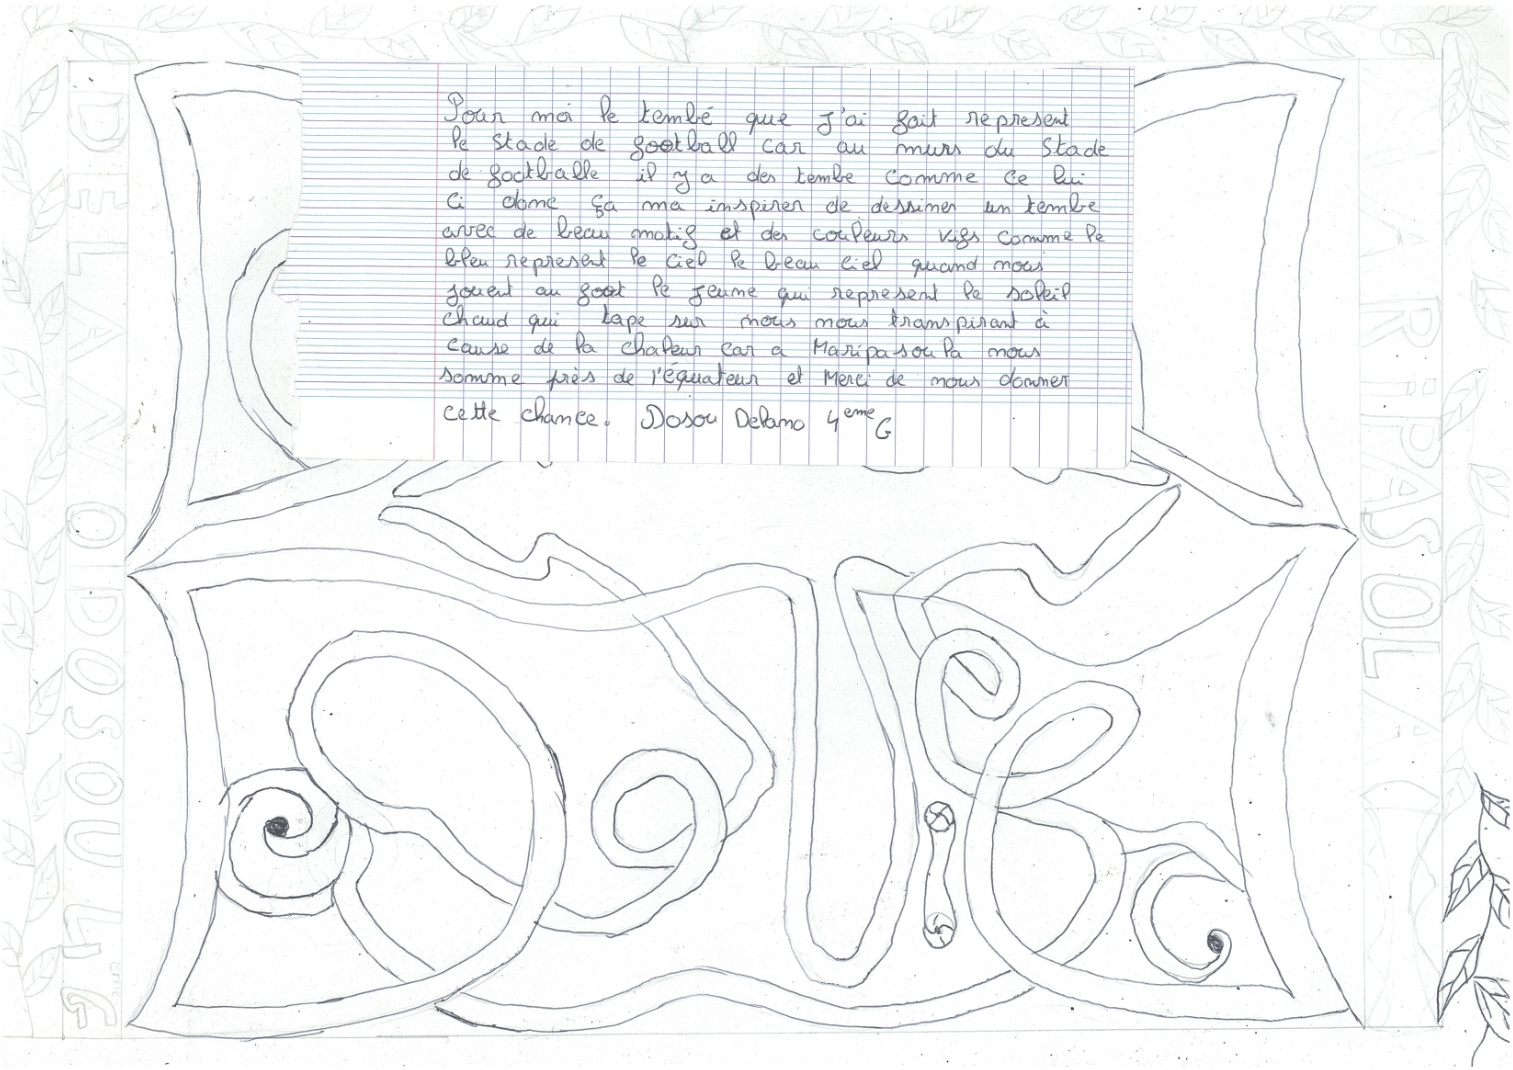 Pour moi le tembé que j'ai fait represent
le stade de football car au murs du stade
de footballe il y a des tembe comme ce lui
ci donc ça ma inspirer de dessiner un tembe
avec de beau motif et des couleurs vifs comme le
bleu represent le ciel le beau ciel quand nous
jouent au foot le jeune qui represent le soleil
chaud qui tape sur nous nous transpirant à
cause de la chaleur car a Maripasoula nous
somme près de l'équateur et Merci de nous donner
cette chance. Dosou Delano 4eme G
DELANO DOSOU 4eme G